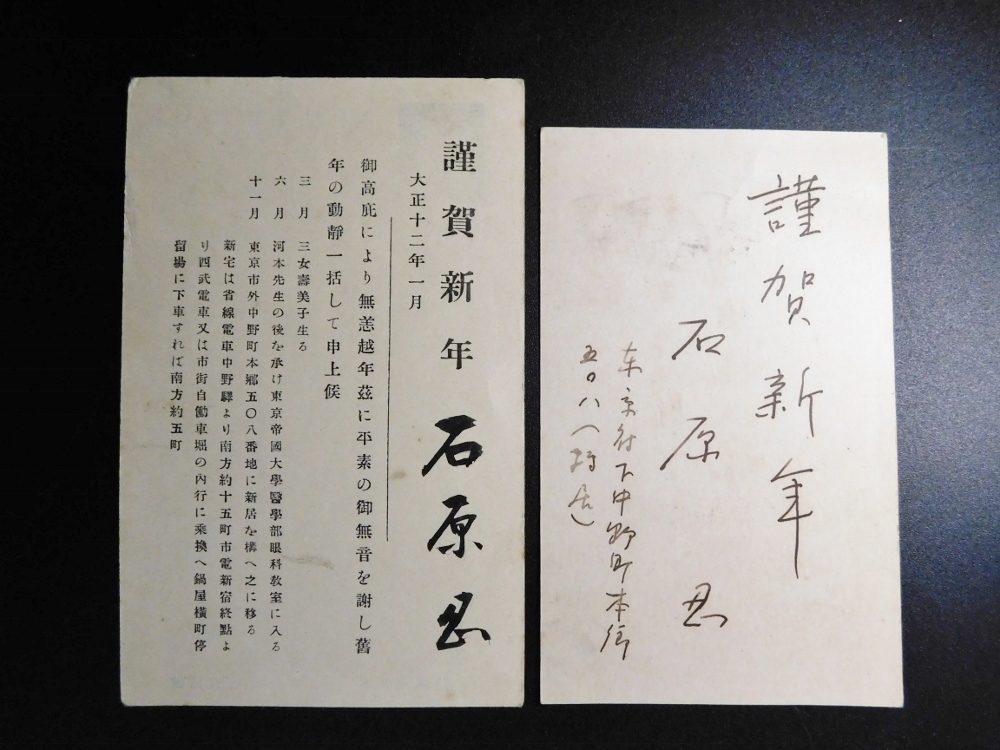 謹賀新年 石原忍
大正十二年一月
御高庇により無恙越年茲に平素の御無音を謝し舊
年の動靜一括して申上候
三月 三女壽美子生る
六月 河本先生の後を承け東京帝國大學醫學部眼科教室に入る
十一月 東京市外中野町本郷五〇八番地に新居を構へ之に移る
新宅は省線電車中野驛より南方約十五町市電新宿終點よ
り西武電車又は市街自働車堀の內行に乘換へ鍋屋橫町停
留場に下車すれば南方約五町
謹賀新年
石原忍
東京府下中野町本郷
五〇八(轉居)